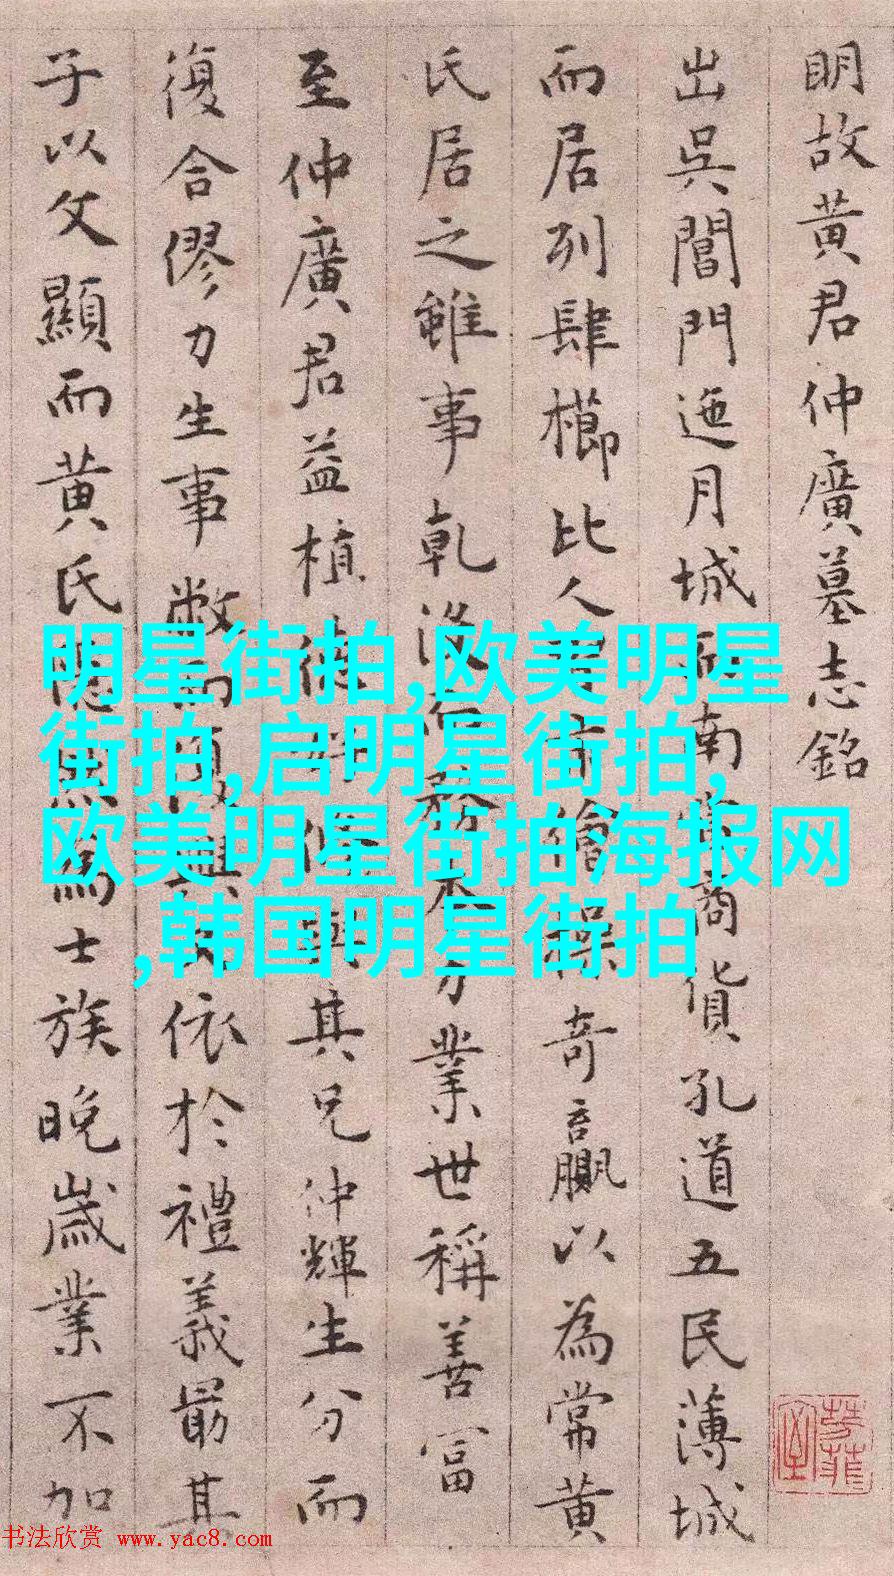 明故黄君仲廣墓志銘
出吳閶門迤月城南商貨孔道五民薄城
而居列肆櫛比人奇贏以為常黄
氏居之雖事乾没而務本力業世稱善富
至仲廣君益植德其兄仲輝生分而
復合僇力生事敝而復依於禮義最其
子以文顯而黄氏為士族晚歲業不加
明星街拍,欧美明星
街拍,启明星街拍,
欧美明星街拍海报网
,韩国明星街拍
书法欣赏 www.yac8.com